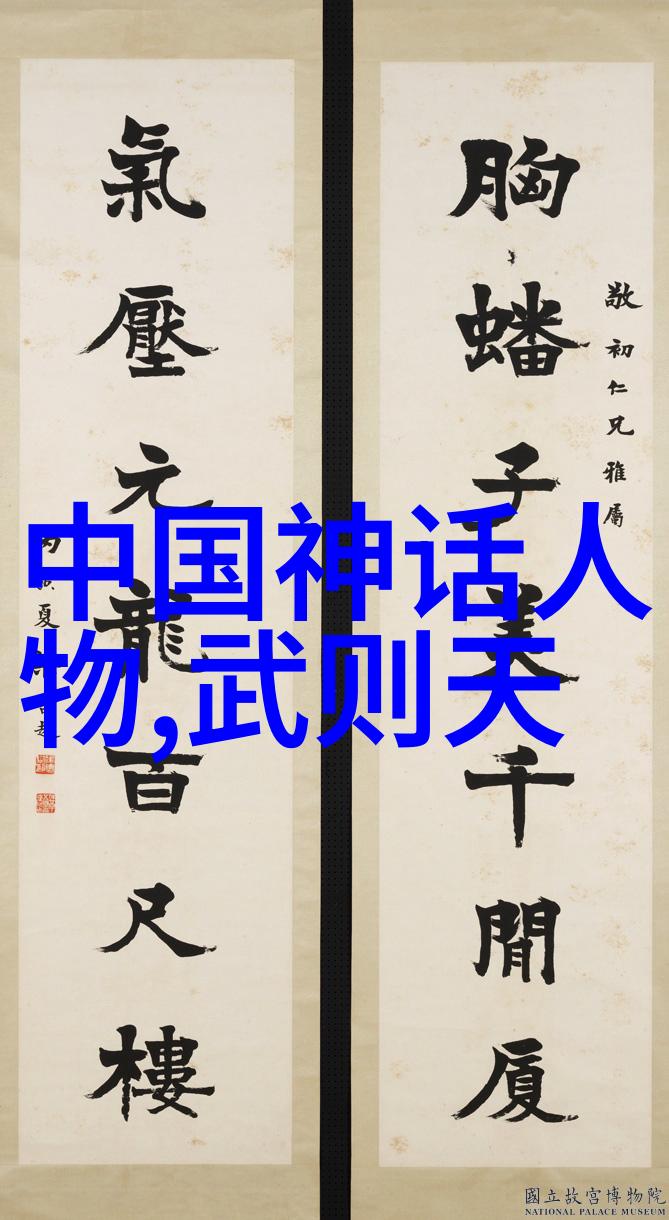 胸蟠子美千間厦
敬初仁兄雅屬
氣壓元龍百尺樓
夏
中国神话人
物,武则天
國立故宮博物院
NATIONAL PALACE MUSEUM